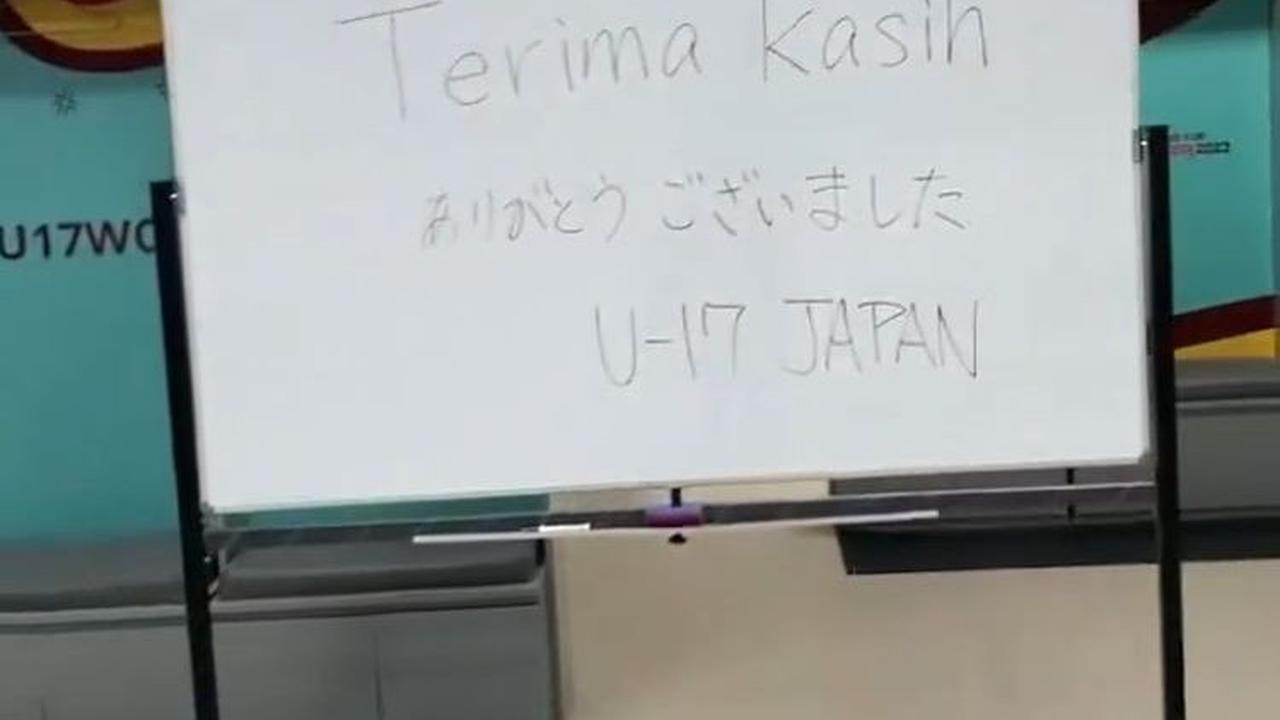 Terima kasih
ありがとうございました
U-17 JAPAN
U17WO